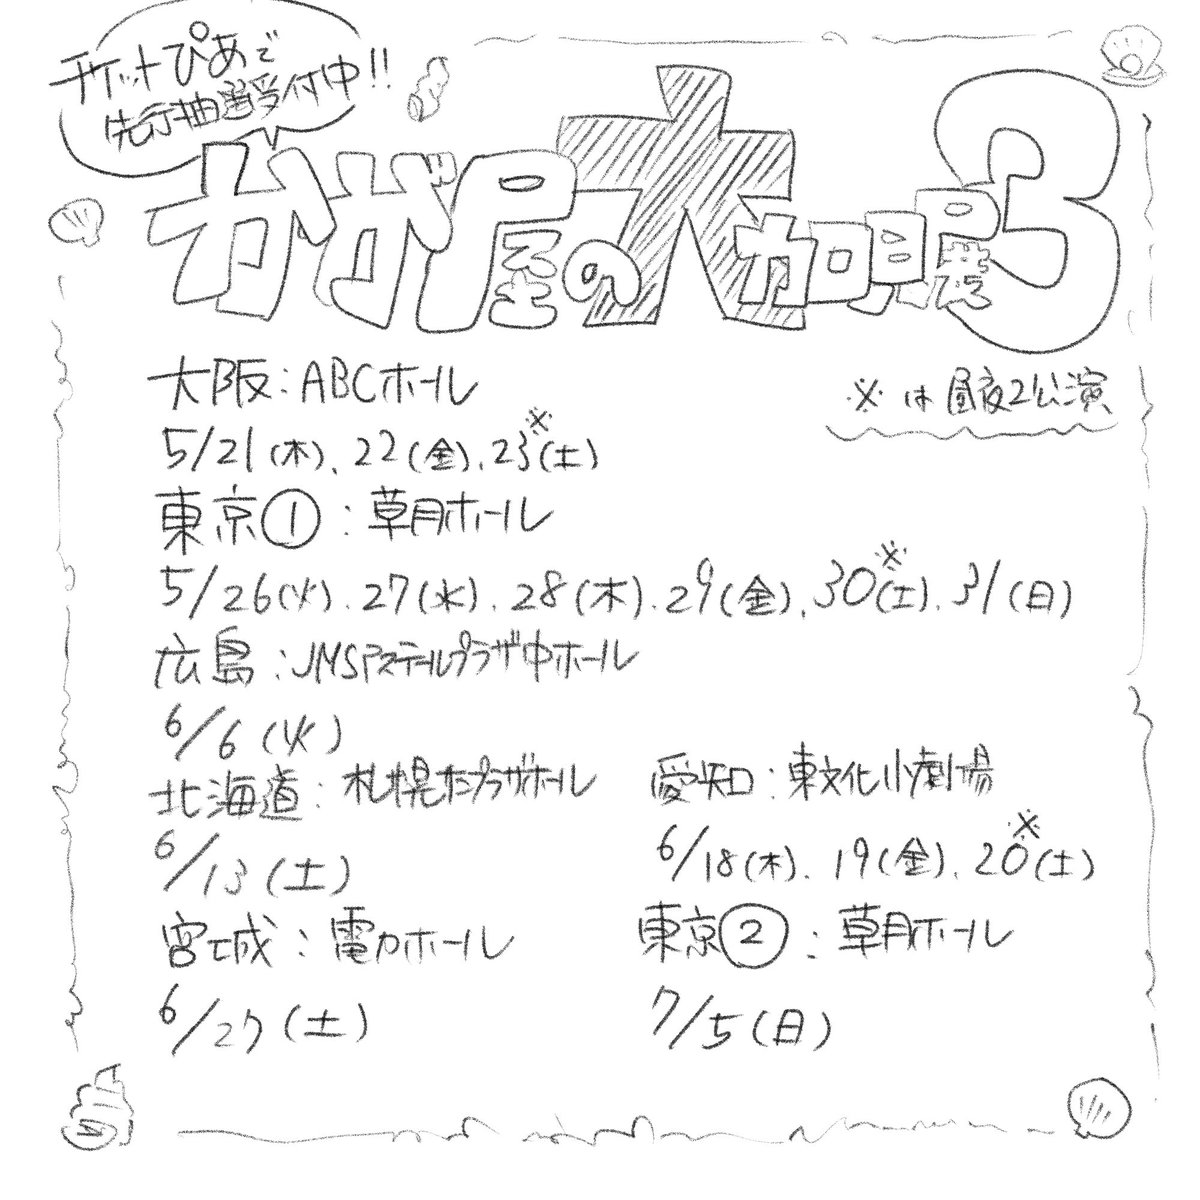 チケットぴあで
先行抽選受付中!!
かが屋の大加賀展3
※は昼夜2公演
大阪:ABCホール
5/21(木)、22(金)、23※(土)
東京①:草月ホール
5/26(火)、27(水)、28(木)、29(金)、30※(土)、31(日)
広島:JMSアステールプラザ中ホール
6/6(火)
北海道:札幌たプラザホール
6/13(土)
愛知:東文化小劇場
6/18(木)、19(金)、20※(土)
宮城:電力ホール
6/27(土)
東京②:草月ホール
7/5(日)